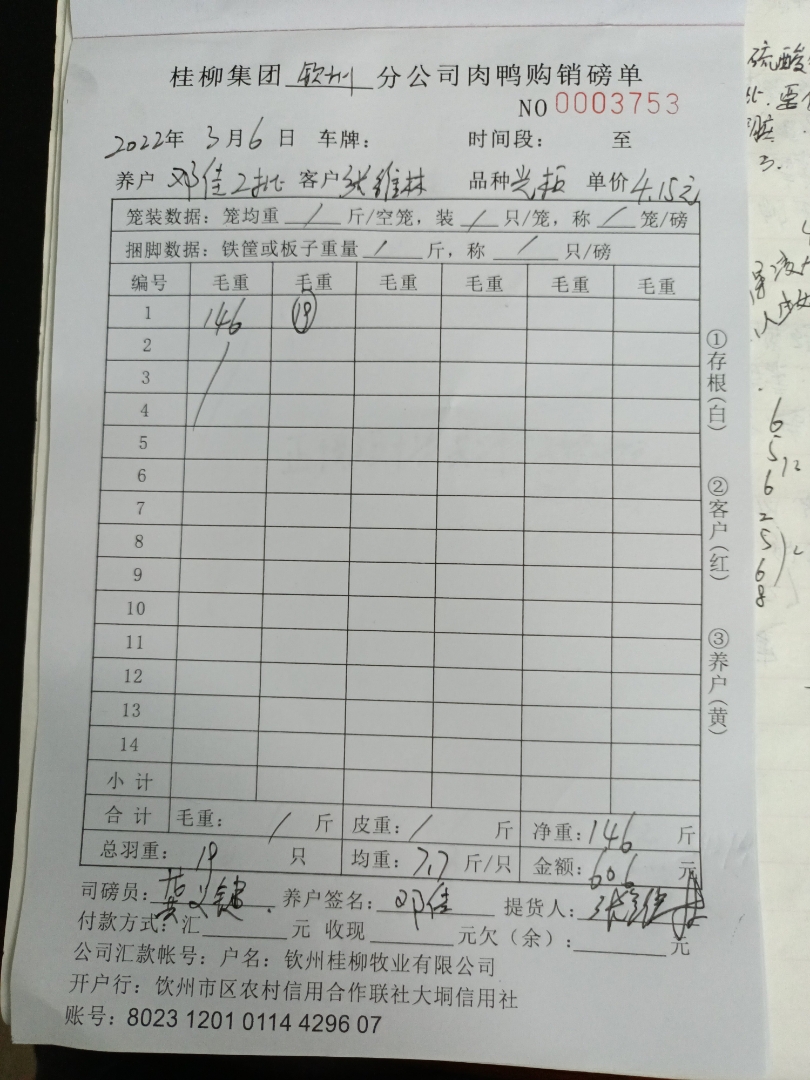 桂柳集团 钦州 分公司肉鸭购销磅单
NO 0003753
2022年 3月6日 车牌： 时间段： 至
养户 邓佳2批 客户 张维林 品种 单价 4.15元
笼装数据：笼均重 / 斤/空笼，装 / 只/笼，称 / 笼/磅
捆脚数据：铁筐或板子重量 / 斤，称 / 只/磅
编号 毛重 毛重 毛重 毛重 毛重 毛重
1 146 19
2
3
4
5
6
7
8
9
10
11
12
13
14
小计
合计 毛重： / 斤 皮重： / 斤 净重：146 斤
总羽重： 19 只 均重：7.7 斤/只 金额：606 元
司磅员： 养户签名：邓佳 提货人：张维林
付款方式：汇 元 收现 元欠（余）： 元
公司汇款帐号：户名：钦州桂柳牧业有限公司
开户行：钦州市区农村信用合作联社大垌信用社
账号：8023 1201 0114 4296 07
①存根(白)
②客户(红)
③养户(黄)
硫酸
3.
6
5
12
6
2
5
6
8